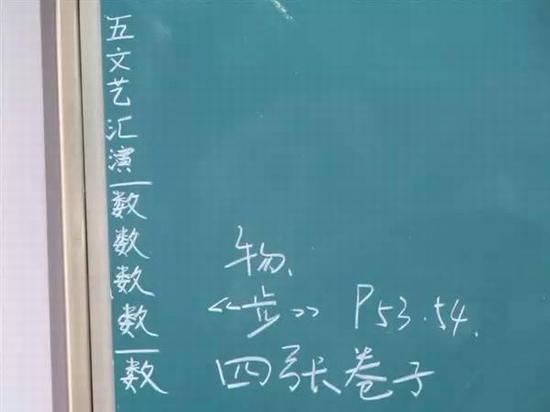 五文艺汇演
数数数数
数
物、
《步》 P53.54.
四张卷子